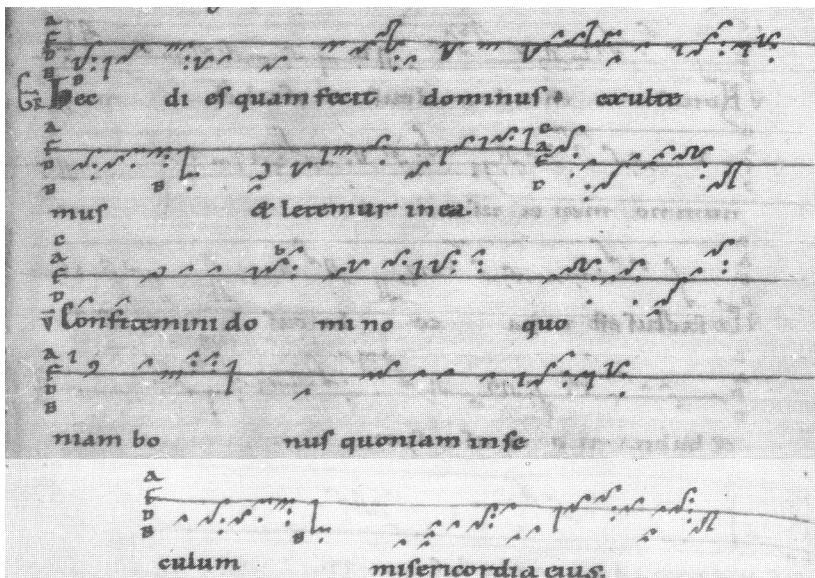 Hec di es quam fecit dominus exulte
mus & letemur in ea
v Confitemini do mi no quo
niam bo nus quoniam inse
culum misericordia eius.